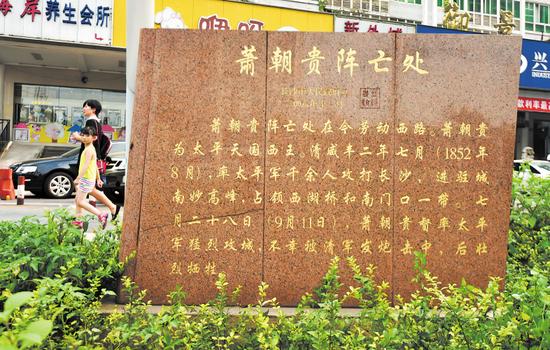 海岸
养生会所
萧朝贵阵亡处
萧朝贵阵亡处在今劳动西路。萧朝贵
为太平天国西王。清咸丰二年七月（1852年
8月），率太平军千余人攻打长沙，进驻城
南妙高峰，占领西湖桥和南门口一带。七
月二十八日（9月11日），萧朝贵督率太平
军猛烈攻城，不幸被清军发炮击中，后壮
烈牺牲。
兴